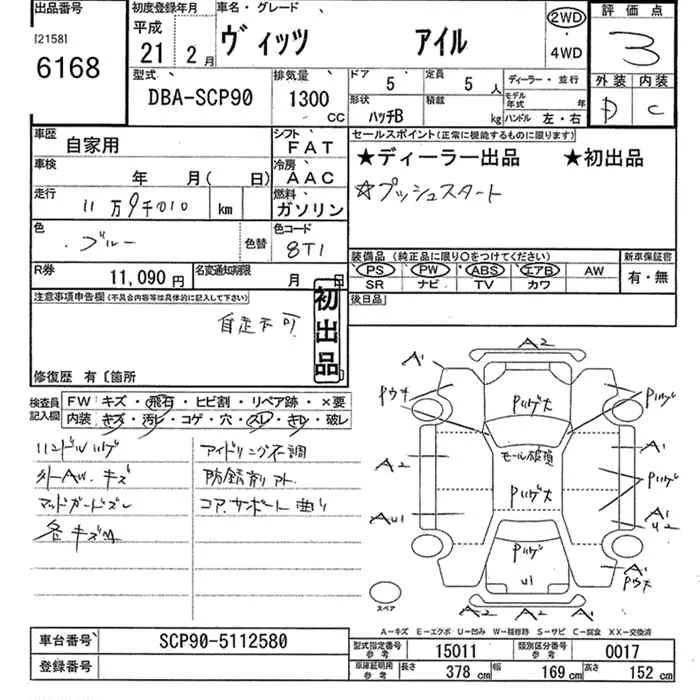 出品番号 初度登録年月 車名・グレード 評価点
[2158] 平成 ヴィッツ アイル 2WD 3
6168 21 2月 ・ 4WD
型式 排気量 ドア 定員 ディーラー・並行 外装 内装
DBA-SCP90 1300 CC 5 5人 モデル年式 年 D C
形状 積載
ハッチB kg ハンドル 左・右
車歴 自家用 シフト FAT セールスポイント(正常に機能するものに限ります)
車検 年 月( 日) 冷房 AAC ★ディーラー出品 ★初出品
走行 11万9千010 km 燃料 ガソリン ☆プッシュスタート
色 ブルー 色替 色コード 8T1
装備品(純正品に限り○をつけてください) 新車保証書
R券 11,090円 名変通知期限 月 日 PS PW ABS エアB AW 有・無
SR ナビ TV カワ
注意事項申告欄(不具合内容等は具体的に記入して下さい) 初出品 後日品
自走不可
修復歴 有〔箇所
検査員記入欄 FW キズ・飛石・ヒビ割・リペア跡・×要
内装 キズ・汚レ・コゲ・穴・スレ・キレ・破レ
ハンドルハゲ アイドリング不調
外-AW.キズ 防錆剤アト
マッドガードズレ コア.サポート曲り
各キズ凹
A2
A1 A
Pウキ Pハゲ大 Pハゲ
モール破損 A1
A2 Pハゲ
Pハゲ大
AU1 A
U2
Pハゲ A1
U1 Pウ大
A2 A2 A2
スペア
A-キズ E-エクボ U-凹み W-補修跡 S-サビ C-腐食 XX-交換済
車台番号 SCP90-5112580 型式指定番号 参考 15011 類別区分番号 参考 0017
登録番号 車庫証明用 参考 長さ 378 cm 幅 169 cm 高さ 152 cm